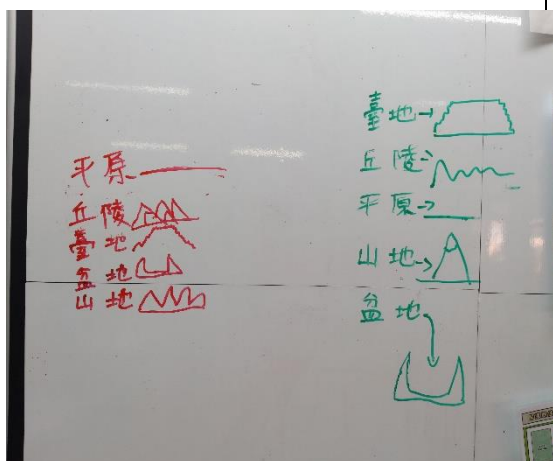 平原
丘陵
臺地
盆地
山地
臺地→
丘陵→
平原→
山地→
盆地